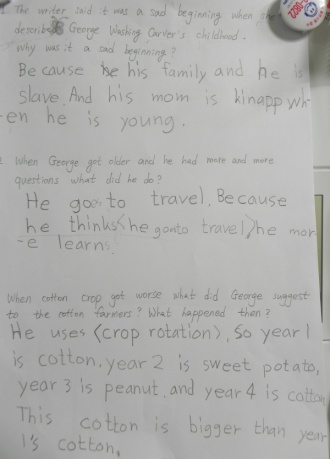 1. The writer said it was a sad beginning when she
describes George Washing Carver's childhood.
Why was it a sad beginning?
Because he his family and he is
slave. And his mom is kinapp wh-
en he is young.
2. When George got older and he had more and more
questions what did he do?
He goes to travel. Because
he thinks<he goes to travel>he mor-
e learns.
When cotton crop got worse what did George suggest
to the cotton farmers? What happened then?
He uses <crop rotation>, So year 1
is cotton, year 2 is sweet potato,
year 3 is peanut, and year 4 is cotton
This cotton is bigger than year
1's cotton.